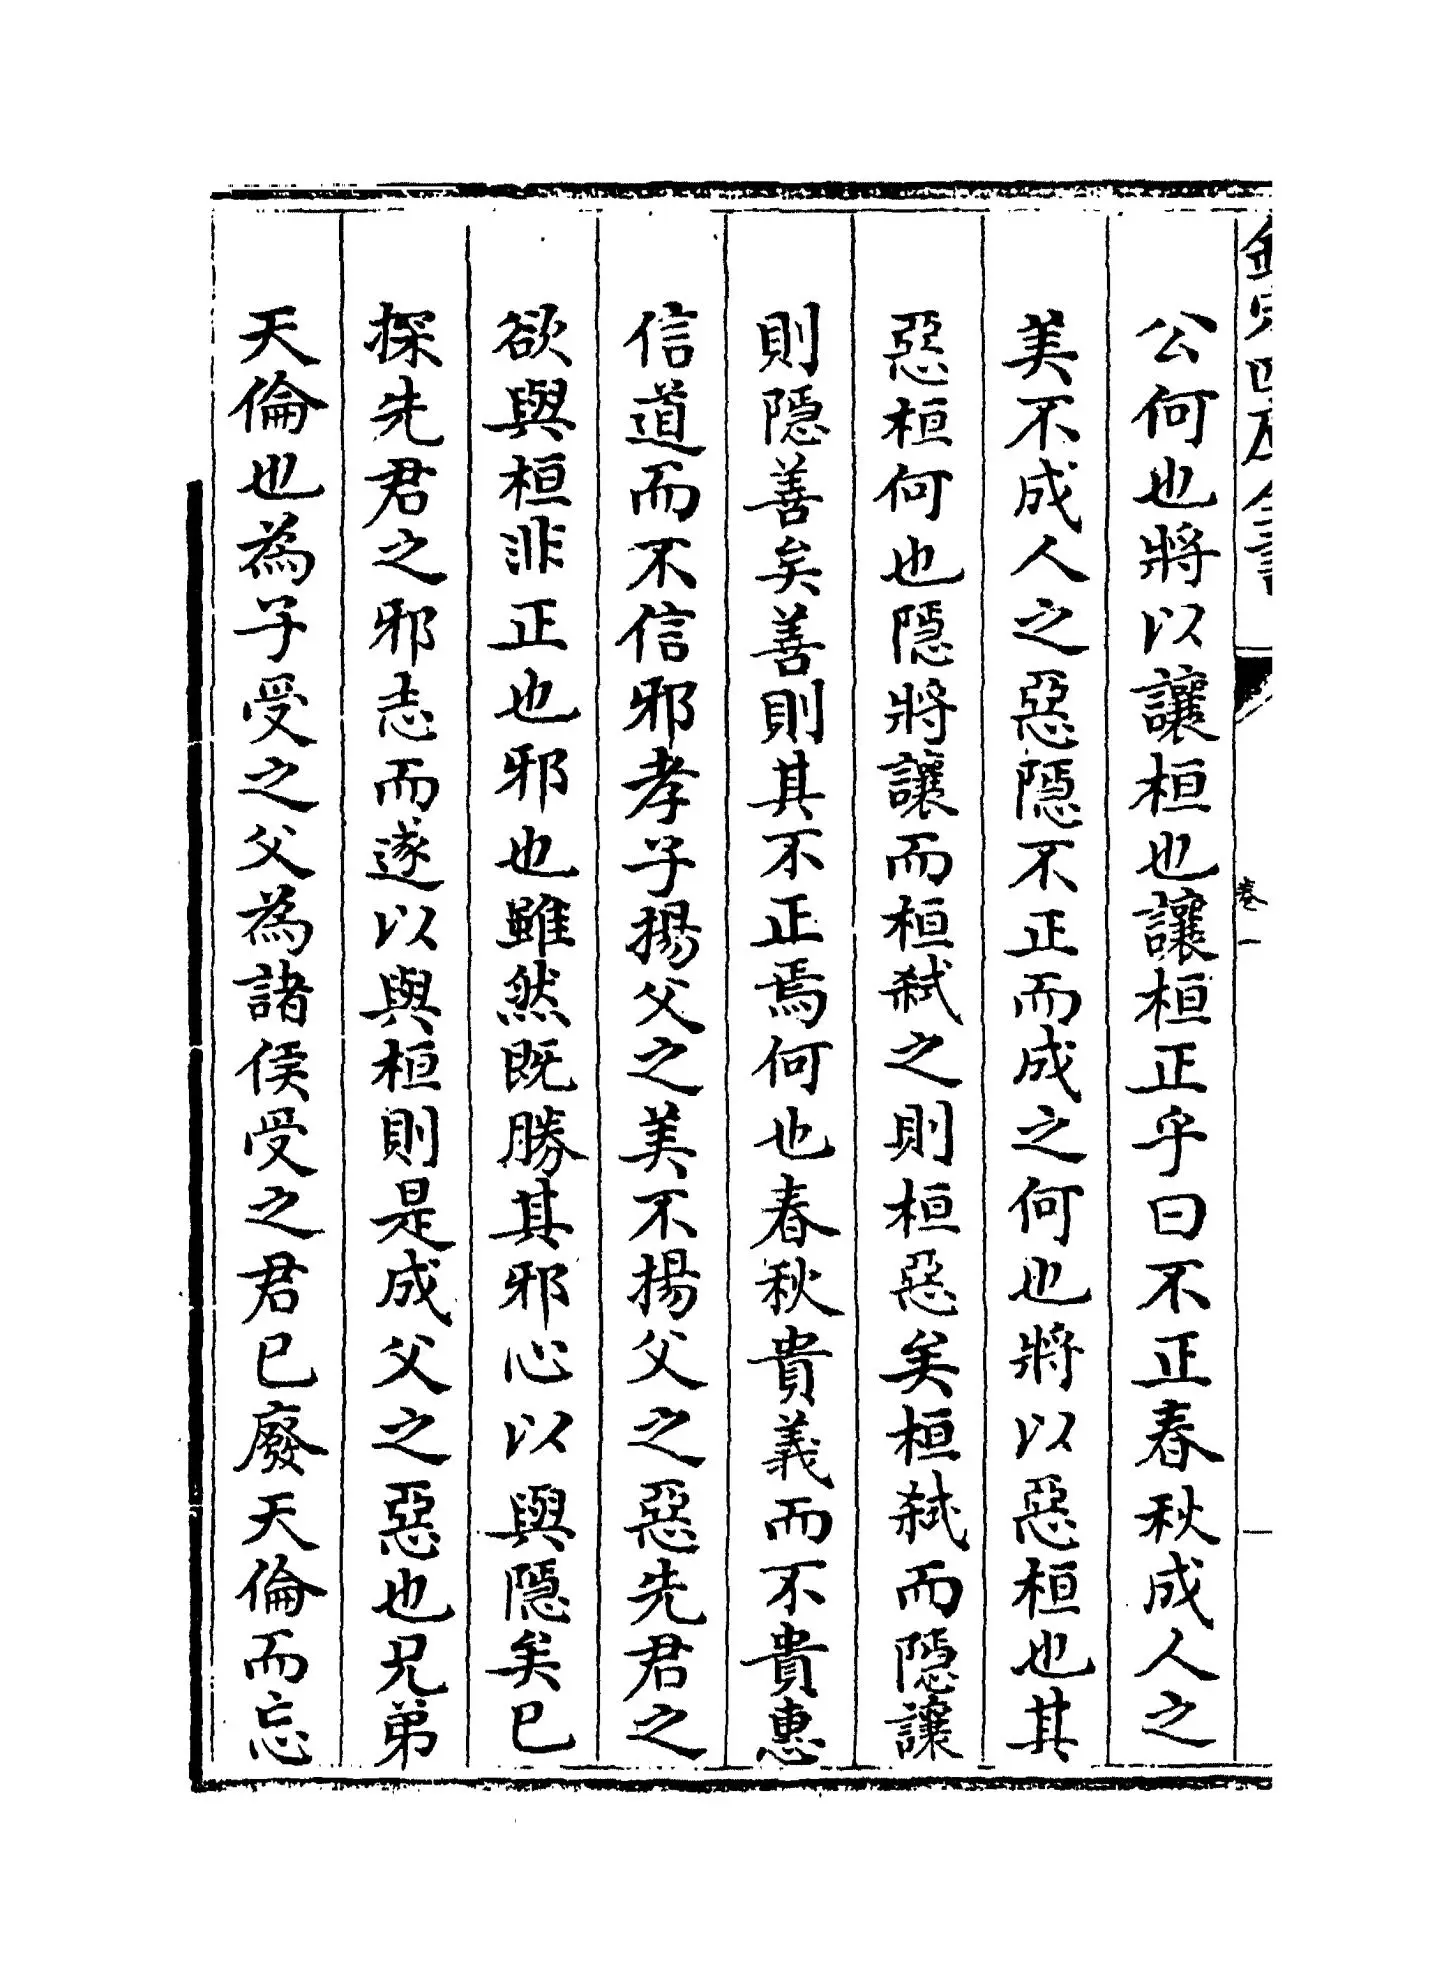 欽定四庫全書
卷一
公何也將以讓桓也讓桓正乎曰不正春秋成人之
美不成人之惡隱不正而成之何也將以惡桓也其
惡桓何也隱將讓而桓弑之則桓惡矣桓弑而隱讓
則隱善矣善則其不正焉何也春秋貴義而不貴惠
信道而不信邪孝子揚父之美不揚父之惡先君之
欲與桓非正也邪也雖然既勝其邪心以與隱矣已
探先君之邪志而遂以與桓則是成父之惡也兄弟
天倫也為子受之父為諸侯受之君已廢天倫而忘